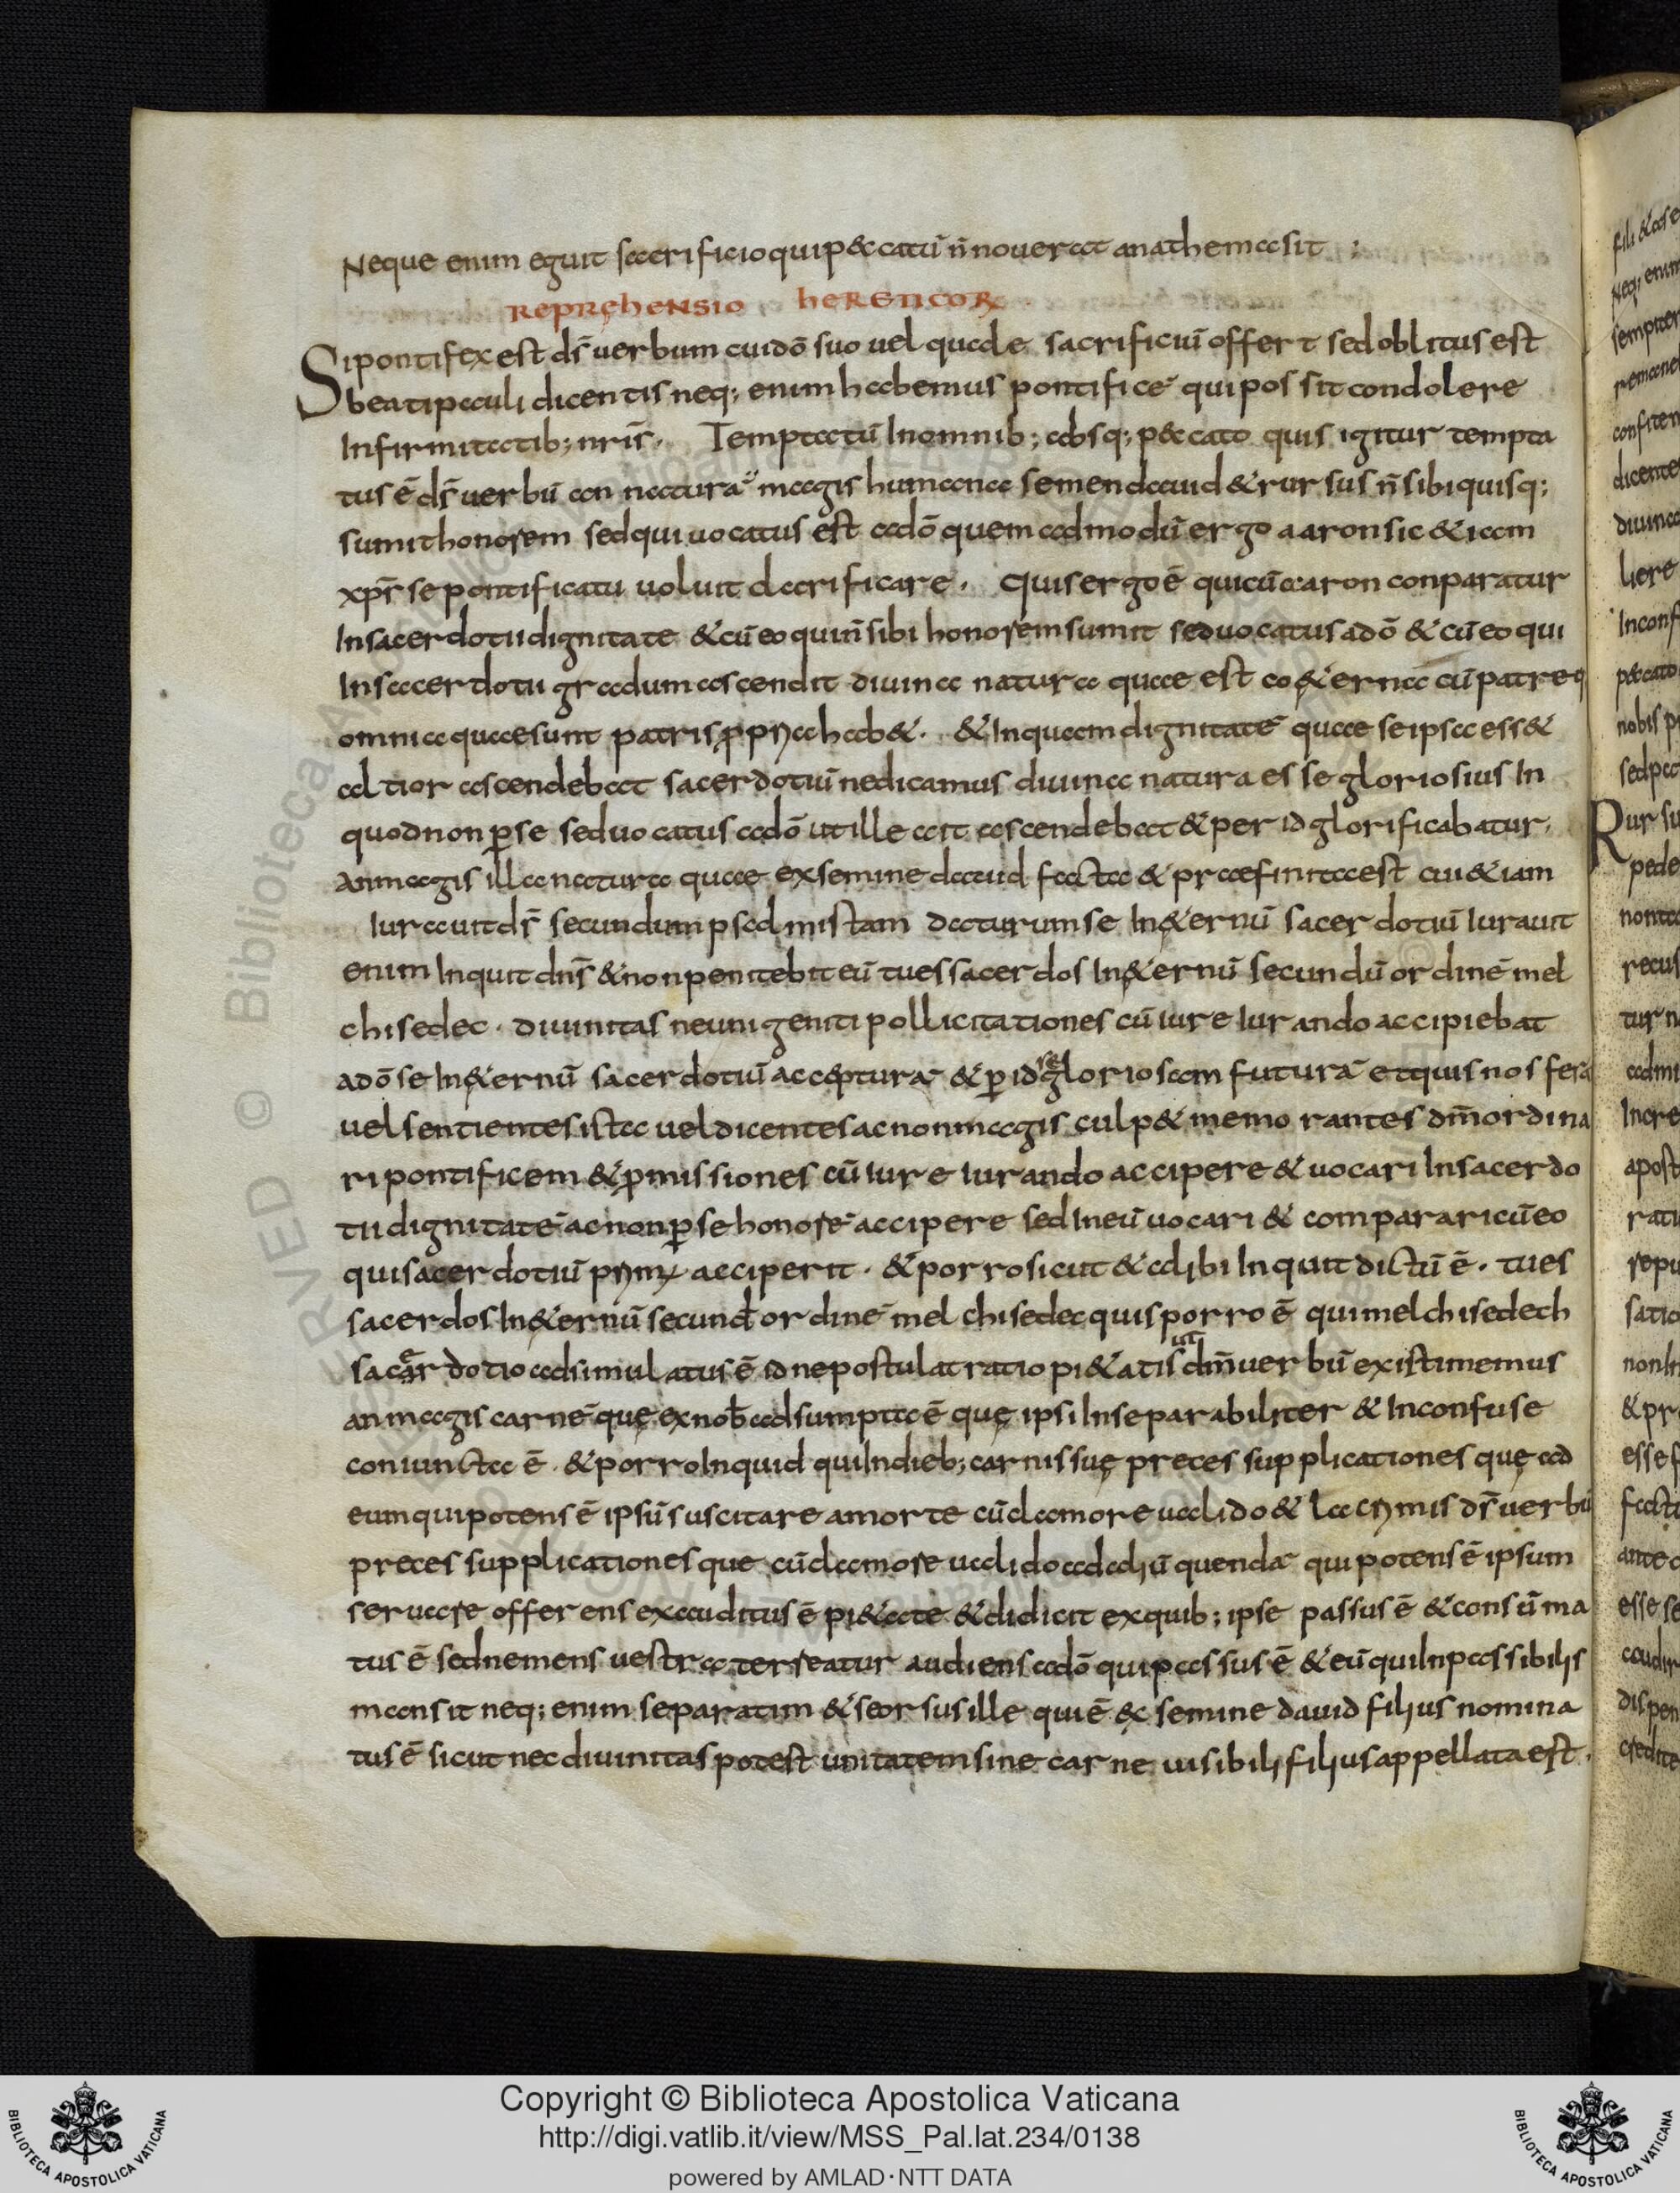 Neque enim eguit sacrificio qui p&catū n̄ nouerat anathema sit :
REPRĘHENSIO HERETICOR̄
Si pontifex est dr̄ uerbum cui dō suo uel quale sacrificiū offert sed oblitus est
beati pauli dicentis neq; enim habemus pontificē qui possit condolere
Infirmitatib; nrīs. Temptatū In omnib; absq; p&cato quis igitur tempta
tus ē dr̄ uerbū an naturā magis humana semen dauid & rursus n̄ sibi quisq;
sumit honorem sed qui uocatus est adō quem admodū ergo aaron sic & iam
xpr̄ se pontificatu uoluit clarificare. Quis ergo ē qui cū aaron conparatur
In sacerdotii dignitate & cū eo qui n̄ sibi honorem sumit sed uocatus adō & cū eo qui
In sacerdotii gradum ascendit diuina natura quae est co&erna cū patre q
omnia quae sunt patris ppria hab&. & In quam dignitatē quae se ipsa ess&
altior ascendebat sacerdotiū ne dicamus diuina natura esse gloriosius In
quod non p se sed uocatus adō ut ille ait ascendebat & per id glorificabatur.
an magis illa natura quae ex semine dauid facta & praefinita est cui & iam
Iurauit dr̄ secundum psalmistam daturum se In &ernū sacerdotiū Iurauit
enim Inquit dnr̄ & non penitebit eū tu es sacerdos In &ernū secundū ordinē mel
chisedec. diuinitas ne unigeniti pollicitationes cū iure Iurando accipiebat
adō se In &ernū sacerdotiū accepturā & p id se gloriosam futurā et quis nos fera
uel sentientes ista uel dicentes ac non magis culp& memorantes dm̄ ordina
ri pontificem & pmissiones cū Iure Iurando accipere & uocari In sacerdo
tii dignitatē ac non p se honorē accipere sed In eū uocari & comparari cū eo
qui sacerdotiū acciperit. & porro sicut & alibi Inquit dictū ē. tu es
sacerdos In &ernū secund ordinē melchisedec quis porro ē qui melchisedech
sacerdotio adsimulatus ē id ne postulat ratio pi&atis ut dm̄ uerbū existimemus
an magis carnē quę ex nob adsumpta ē quę ipsi Inseparabiliter & Inconfuse
coniuncta ē. & porro Inquid qui In dieb; carnis suę preces supplicationesque ad
eum qui potens ē ipsū suscitare a morte cū clamore ualido & lacrimis dr̄ uerbū
preces supplicationesque cū clamore ualido ad aliū quendā qui potens ē ipsum
seruare offerens exauditus ē pi&ate & didicit ex quib; ipse passus ē & consūma
tus ē sed ne mens uestra terreatur audiens adō qui passus ē & eū qui Inpassibilis
mansit neq; enim separatim & seorsus ille qui ē &c semine dauid filius nomina
tus ē sicut nec diuinitas potest unitatem sine carne uisibili filius appellata est.
Copyright © Biblioteca Apostolica Vaticana
http://digi.vatlib.it/view/MSS_Pal.lat.234/0138
powered by AMLAD·NTT DATA
BIBLIOTECA APOSTOLICA VATICANA
BIBLIOTECA APOSTOLICA VATICANA